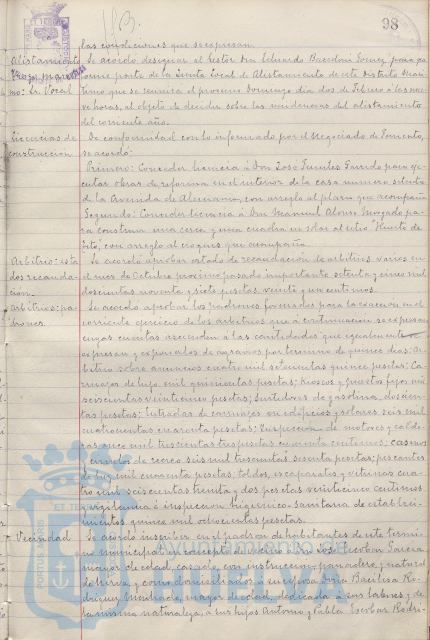 98
las condiciones que se expresan.
Alistamiento
Se acordó designar al Gestor Don Eduardo para
forme parte de la Junta Local de Alistamiento de este Distrito Marí-
mo: Sr. Vocal
timo que se reunirá el próximo Domingo día dos de Febrero a las nueve
horas, al objeto de decidir sobre las incidencias del alistamiento
del corriente año.
Licencias de
De conformidad con lo informado por el Negociado de Fomento,
construcción
se acordó:
Primero: Conceder licencia a Don José Fuentes Garrido para eje-
cutar obras de reforma en el interior de la casa número
de la Avenida de Alemania, con arreglo al plano que acompaña
Segundo: Conceder licencia a Don Manuel Alonso pa-
ra construir una cerca y una cuadra en solar al sitio "Huerto de
con arreglo al croquis que acompaña
Arbitrio: esta
Se acordó aprobar estado de recaudación de arbitrios varios en
do recauda-
el mes de Octubre próximo pasado importante setenta y cinco mil
ción.
doscientas noventa y siete pesetas veinti y un céntimos.
Arbitrios: pa-
Se acordó aprobar los padrones formados para la exacción en el
drones
corriente ejercicio de los arbitrios que a continuación se expresan
cuyas cuotas ascienden a las cantidades que igualmente se
expresan y exponerlos de agravios por término de quince días: Ar-
bitrio sobre anuncios cuatro mil setecientas quince pesetas; Ca-
rruajes de lujo mil quinientas pesetas; Kioscos y puestos fijos mil
seiscientas veinticinco pesetas; Surtidores de gasolina, doscien-
tas pesetas; Entradas de carruajes en edificios y solares seis mil
cuatrocientas cuarenta pesetas; Inspección de motores y calde-
ras once mil trescientas tres pesetas cincuenta céntimos; casinos
y círculos de recreo seis mil trescientas sesenta pesetas; pescantes
de luz mil cuarenta pesetas; toldos, escaparates y vitrinas cua-
tro mil seiscientas treinta y dos pesetas veinticinco céntimos
y vigilancia e inspección higiénico-sanitaria de estableci-
mientos quince mil ochocientas pesetas.
Vecindad
Se acordó inscribir en el padrón de habitantes de este térmi-
no municipal en concepto de vecino a Don José Escobar García
mayor de edad, casado, con instrucción, panadero, y natural
de Nerva, y como domiciliados a su esposa Doña Basilisa Ro-
dríguez mayor de edad, dedicada a sus labores y de
la misma naturaleza, a sus hijos Antonio y Pabla Escobar Rodrí-
Ayuntamiento de